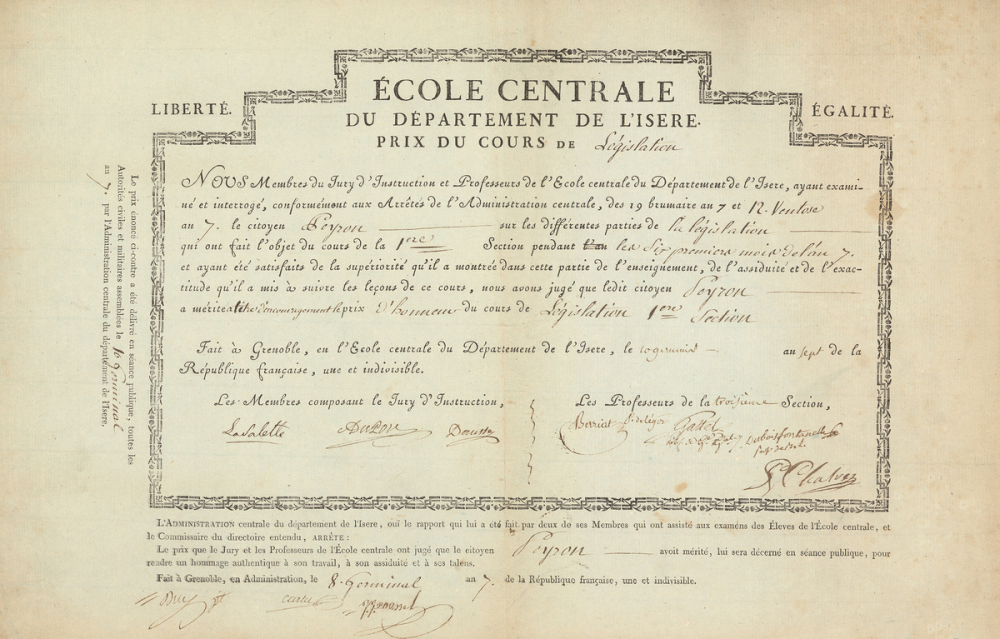 LIBERTÉ.
ÉCOLE CENTRALE
ÉGALITÉ.
DU DÉPARTEMENT DE L'ISERE.
PRIX DU COURS DE Législation
NOUS Membres du Jury d'Instruction et Professeurs de l'Ecole centrale du Département de l'Isere, ayant exami-
né et interrogé, conformément aux Arrêtés de l'Administration centrale, des 19 brumaire an 7 et 12. Ventose
an 7. le citoyen Peyron sur les différentes parties de la législation
qui ont fait l'objet du cours de la 1ere Section pendant les six premiers mois de l'an 7.
et ayant été satisfaits de la supériorité qu'il a montré dans cette partie de l'enseignement, de l'assiduité et de l'exac-
titude qu'il a mis à suivre les leçons de ce cours, nous avons jugé que ledit citoyen Peyron
a mérité à titre d'encouragement le prix d'honneur du cours de Législation 1ere Section
Fait à Grenoble, en l'Ecole centrale du Département de l'Isere, le 10 germinal an sept de la
République française, une et indivisible.
Les Membres composant le Jury d'Instruction,
Les Professeurs de la troisieme Section,
Lasalette
Berriat
Gattel
Dubois fontanelle
Chalvet
L'ADMINISTRATION centrale du département de l'Isere, ouï le rapport qui lui a été fait par deux de ses Membres qui ont assisté aux examens des Éleves de l'École centrale, et
le Commissaire du directoire entendu, ARRÊTE :
Le prix que le Jury et les Professeurs de l'École centrale ont jugé que le citoyen Peyron avoit mérité, lui sera décerné en séance publique, pour
rendre un hommage authentique à son travail, à son assiduité et à ses talens.
Fait à Grenoble, en Administration, le 8. Germinal an 7. de la République française, une et indivisible.
Le prix énoncé ci-contre a été délivré en séance publique, toutes les
Autorités civiles et militaires assemblées le 10 Germinal
an 7. par l'Administration centrale du département de l'Isere.